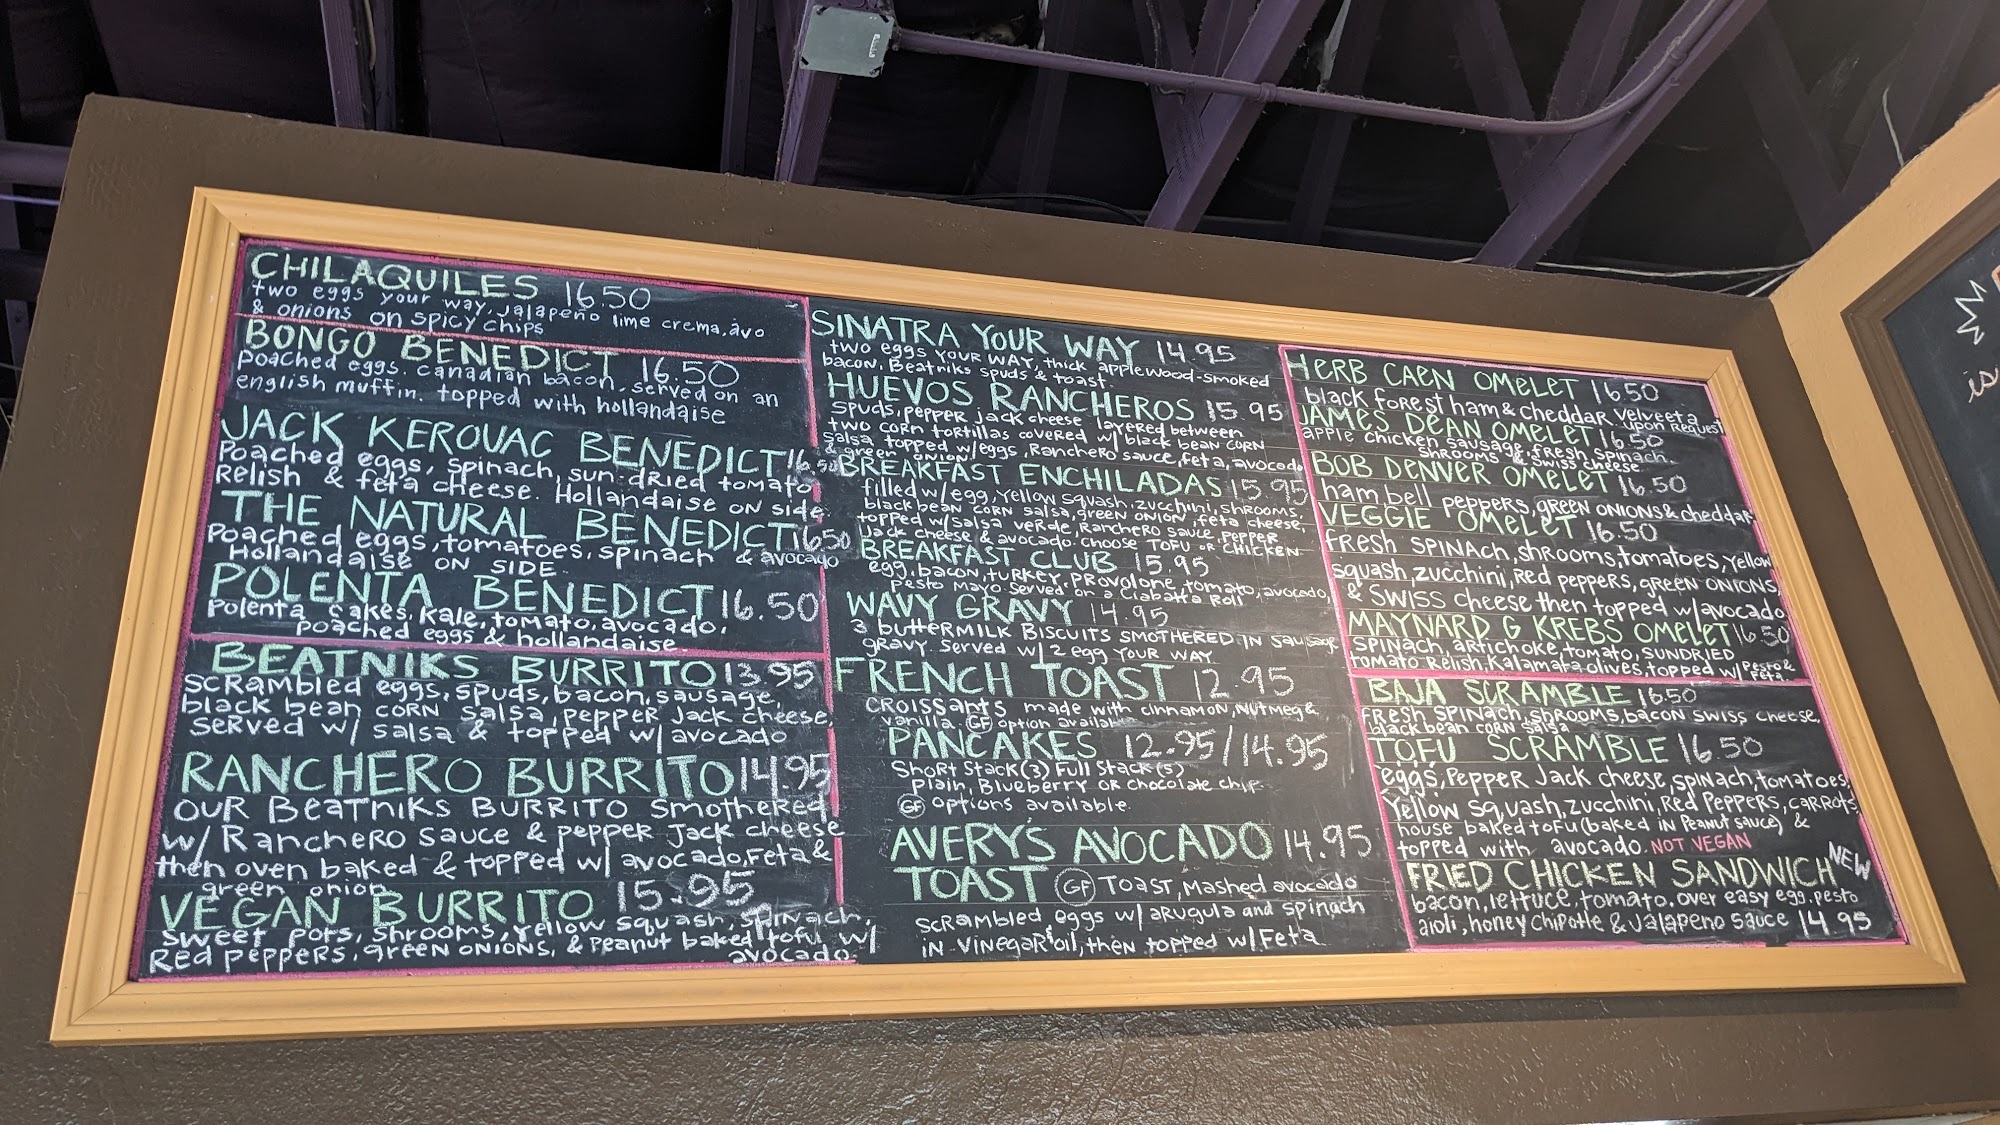 CHILAQUILES 16.50
two eggs your way, jalapeño lime crema, avo
& onions on spicy chips
BONGO BENEDICT 16.50
poached eggs. canadian bacon, served on an
english muffin. topped with hollandaise
JACK KEROUAC BENEDICT 16.50
Poached eggs, spinach, sun-dried tomato
Relish & feta cheese. Hollandaise on side.
THE NATURAL BENEDICT 16.50
Poached eggs, tomatoes, spinach & avocado
Hollandaise ON SIDE.
POLENTA BENEDICT 16.50
Polenta cakes, kale, tomato, avocado,
poached eggs & hollandaise.
BEATNIKS BURRITO 13.95
scrambled eggs, spuds, bacon, sausage,
black bean corn salsa, pepper jack cheese,
served w/ salsa & topped w/ avocado
RANCHERO BURRITO 14.95
OUR BEATNIKS BURRITO smothered
w/ Ranchero sauce & pepper jack cheese
then oven baked & topped w/ avocado, Feta &
green onion
VEGAN BURRITO 15.95
sweet pots, shrooms, yellow squash, spinach,
Red peppers, green onions, & peanut baked tofu w/
avocado.
SINATRA YOUR WAY 14.95
two eggs your way, thick applewood-smoked
bacon, Beatniks spuds & toast.
HUEVOS RANCHEROS 15.95
spuds, pepper jack cheese layered between
two corn tortillas covered w/ black bean corn
salsa topped w/eggs, Ranchero sauce, feta, avocado
& green onion
BREAKFAST ENCHILADAS 15.95
filled w/egg, yellow squash, zucchini, shrooms,
black bean corn salsa, green onion, feta cheese,
topped w/salsa verde, Ranchero sauce, pepper
jack cheese & avocado. choose TOFU or CHICKEN
BREAKFAST CLUB 15.95
egg, bacon, turkey, provolone, tomato, avocado,
pesto mayo served on a ciabatta roll
WAVY GRAVY 14.95
3 buttermilk biscuits smothered in sausage
gravy. served w/ 2 egg your way
FRENCH TOAST 12.95
croissants made with cinnamon, nutmeg &
vanilla. GF option available
PANCAKES 12.95/14.95
Short Stack (3) Full Stack (5)
plain, Blueberry or chocolate chip
GF options available.
AVERY'S AVOCADO 14.95
TOAST GF TOAST, mashed avocado
scrambled eggs w/ arugula and spinach
in vinegar & oil, then topped w/ Feta
HERB CAEN OMELET 16.50
black forest ham & cheddar Velveeta
upon request
JAMES DEAN OMELET 16.50
apple chicken sausage, fresh spinach,
shrooms & swiss cheese
BOB DENVER OMELET 16.50
ham, bell peppers, green onions & cheddar
VEGGIE OMELET 16.50
fresh spinach, shrooms, tomatoes, yellow
squash, zucchini, Red peppers, green onions,
& swiss cheese then topped w/avocado
MAYNARD G KREBS OMELET 16.50
spinach, artichoke, tomato, sundried
tomato relish, Kalamata olives, topped w/ Pesto &
Feta
BAJA SCRAMBLE 16.50
Fresh spinach, shrooms, bacon swiss cheese,
black bean corn salsa
TOFU SCRAMBLE 16.50
eggs, pepper Jack cheese, spinach, tomatoes,
yellow squash, zucchini, Red Peppers, carrots,
house baked tofu (baked in peanut sauce) &
topped with avocado. NOT VEGAN
FRIED CHICKEN SANDWICH NEW
bacon, lettuce, tomato, over easy egg, pesto
aioli, honey chipotle & jalapeno sauce 14.95
is